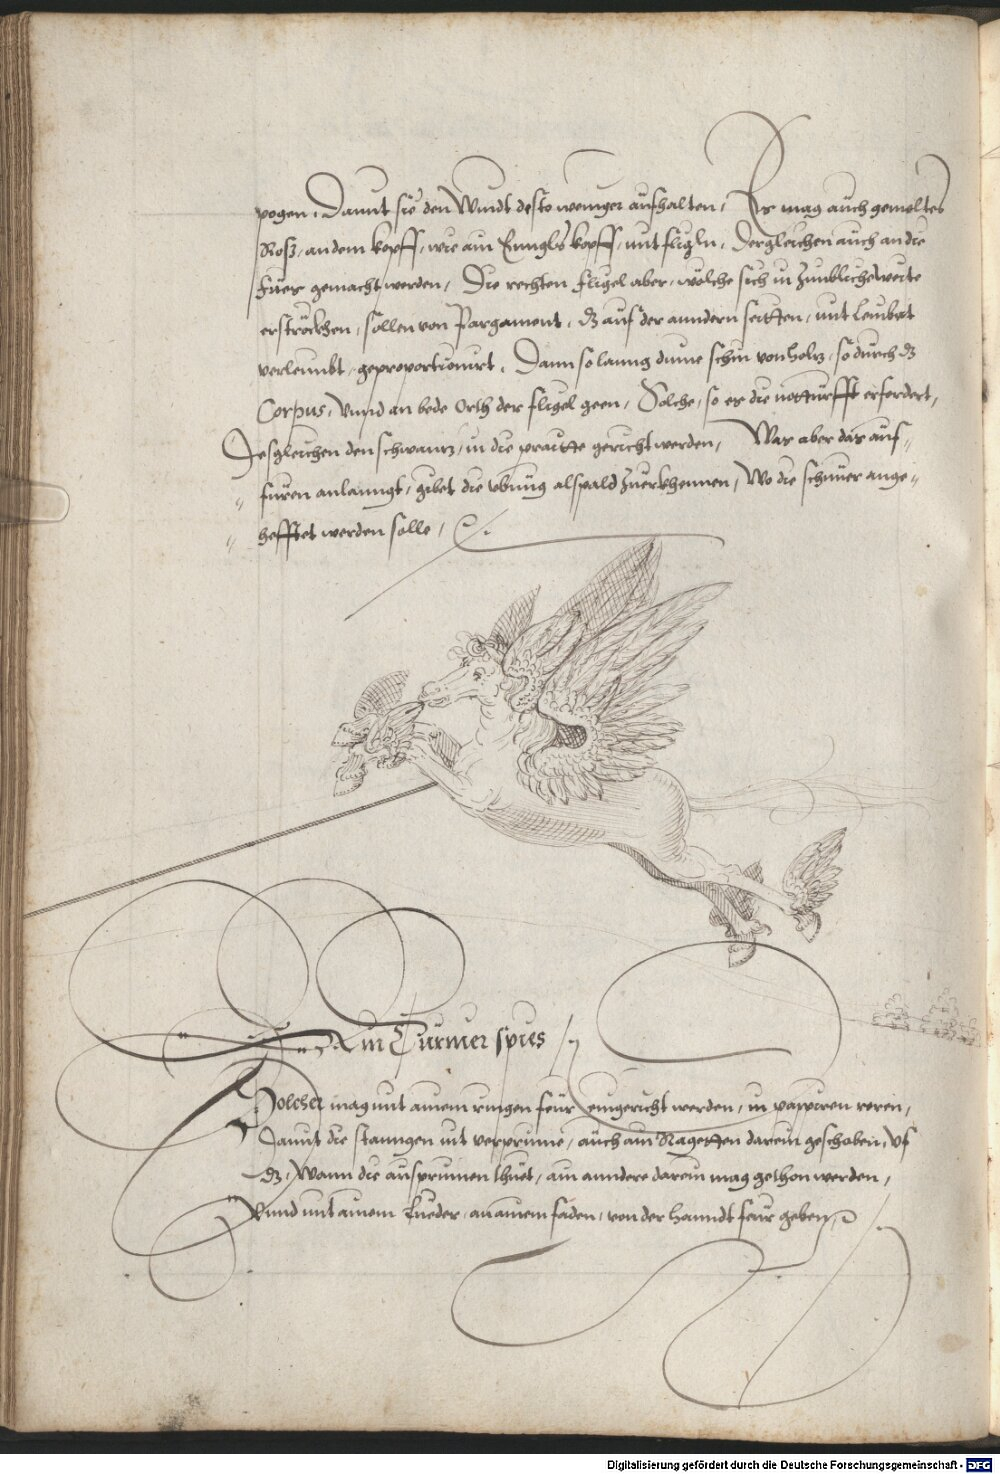 pogen. Damit sie den Windt desto weniger aufhalten, Es mag auch gemeltes
Roß, an dem kopff, wie ain Ennglß kopff, mit fligln. Dergleichen auch an die
Füeß gemacht werden, Die rechten fligel aber, wölche sich in zimbliche weite
erströckhen, sollen von Pargament, dz auf der anndern seitten, mit Leinbat
verleimbt, geproportionirt. Dann so lanng dinne schin von holtz, so durch dz
Corpus, Vnnd an bede Orth der fligel geen, Solche, so es die notturfft erfordert,
Desgleichen den schwanz, in die praitte gericht werden, Was aber das auf-
füren anlanngt, gibet die vbung alspald zuerkhennen, Wo die schnüer ange-
hefftet werden solle,
Ain Turnier spies
Solcher mag mit ainem ringen feür eingericht werden, in pappiren roren,
Damit die stanngen nit verprinne, auch ain Ragetten darein geschoben, vf
dz, Wann die ausprunnen thuet, ain anndere darein mag gethon werden,
Vnnd mit ainem Lueder, an ainem faden, von der hanndt feür geben
Digitalisierung gefördert durch die Deutsche Forschungsgemeinschaft - DFG